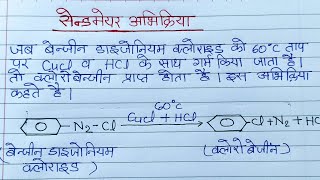 सेन्डमेयर अभिक्रिया
जब बेन्जीन डाइजोनियम क्लोराइड को 60°C ताप
पर CuCl व HCl के साथ गर्म किया जाता है।
तो क्लोरोबेन्जीन प्राप्त होता है। इस अभिक्रिया
कहते है।
60°C
N2-Cl CuCl + HCl Cl + N2 + HC
बेन्जीन डाइजोनियम (क्लोरोबेंजीन)
क्लोराइड )